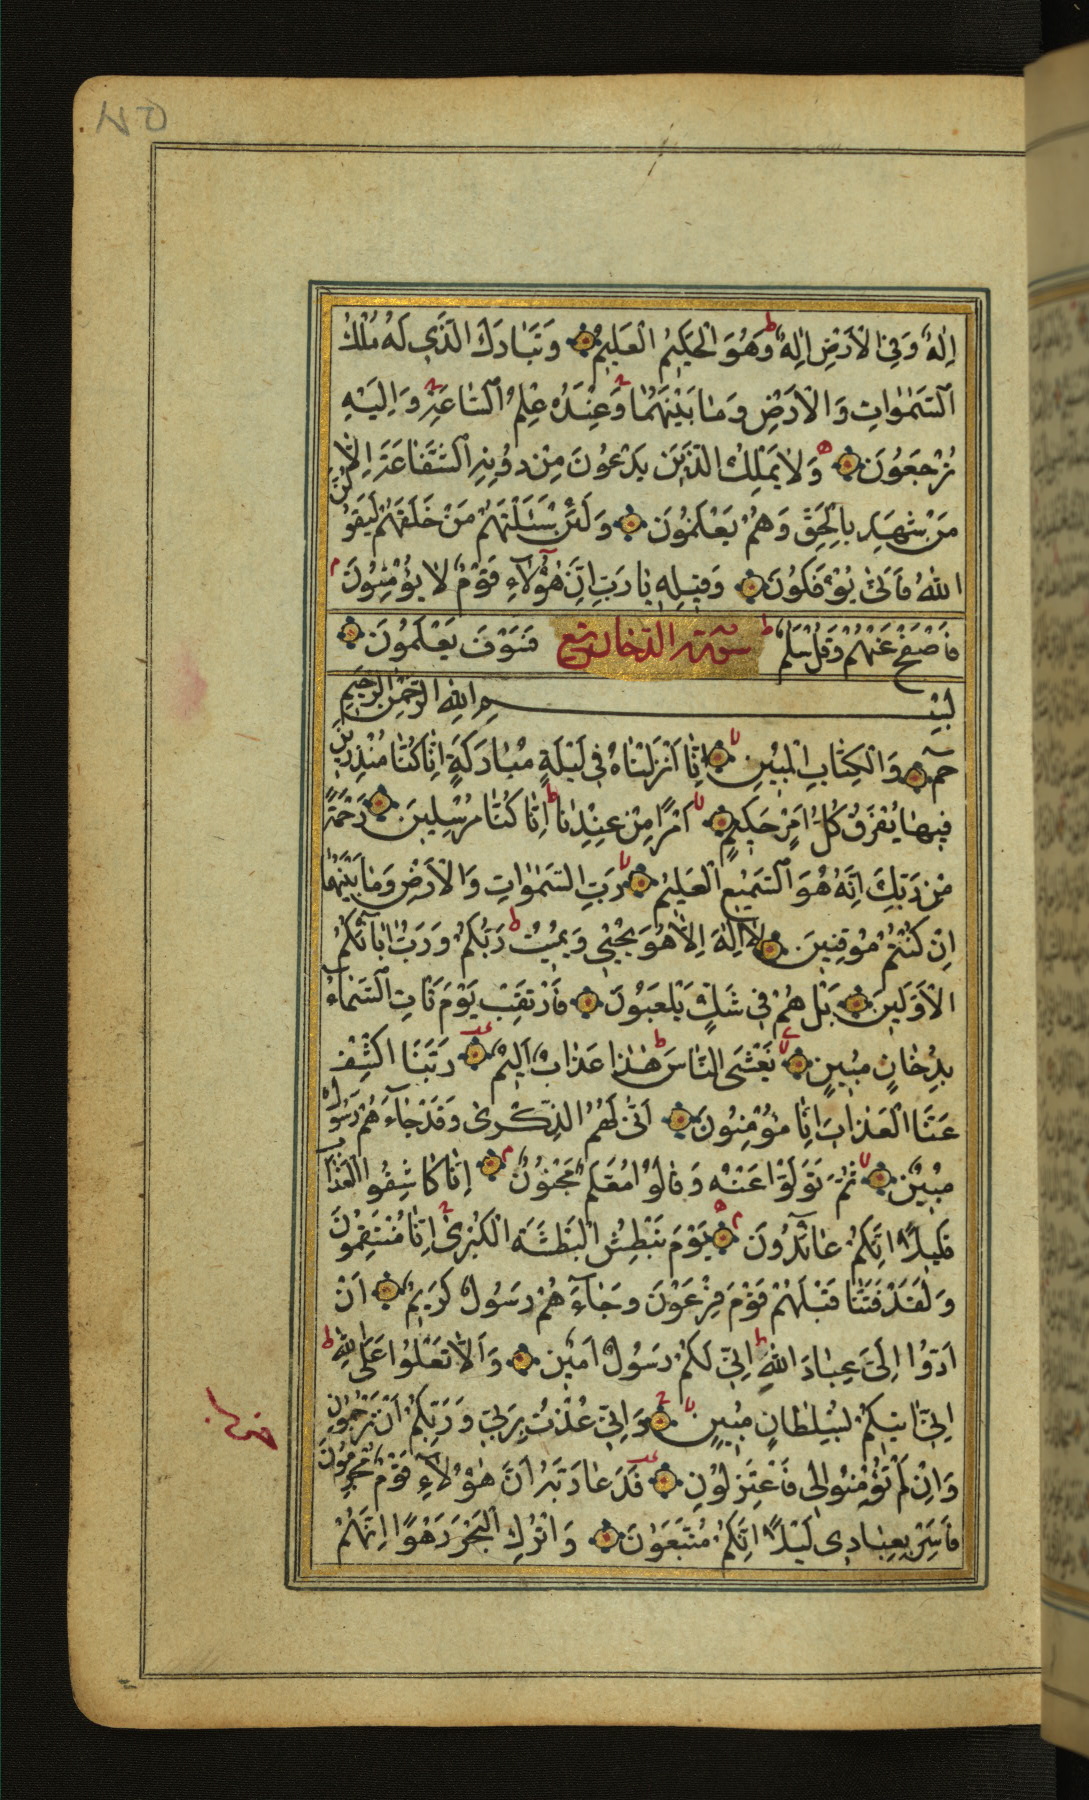 اِلٰهٌ وَفِي الْاَرْضِ اِلٰهٌ وَهُوَ الْحَكِيمُ الْعَلِيمُ وَتَبَارَكَ الَّذِي لَهُ مُلْكُ
السَّمٰوَاتِ وَالْاَرْضِ وَمَا بَيْنَهُمَا وَعِنْدَهُ عِلْمُ السَّاعَةِ وَاِلَيْهِ
تُرْجَعُونَ وَلَا يَمْلِكُ الَّذِينَ يَدْعُونَ مِنْ دُونِهِ الشَّفَاعَةَ اِلَّا
مَنْ شَهِدَ بِالْحَقِّ وَهُمْ يَعْلَمُونَ وَلَئِنْ سَئَلْتَهُمْ مَنْ خَلَقَهُمْ لَيَقُولُنَّ
اللّٰهُ فَاَنّٰى يُؤْفَكُونَ وَقِيلِهِ يَا رَبِّ اِنَّ هٰؤُلَآءِ قَوْمٌ لَا يُؤْمِنُونَ
فَاصْفَحْ عَنْهُمْ وَقُلْ سَلٰمٌ سورة الدخان فَسَوْفَ يَعْلَمُونَ
بِسْمِ اللّٰهِ الرَّحْمٰنِ الرَّحِيمِ
حٰمٓ وَالْكِتَابِ الْمُبِينِ اِنَّا اَنْزَلْنَاهُ فِي لَيْلَةٍ مُبَارَكَةٍ اِنَّا كُنَّا مُنْذِرِينَ
فِيهَا يُفْرَقُ كُلُّ اَمْرٍ حَكِيمٍ اَمْرًا مِنْ عِنْدِنَا اِنَّا كُنَّا مُرْسِلِينَ رَحْمَةً
مِنْ رَبِّكَ اِنَّهُ هُوَ السَّمِيعُ الْعَلِيمُ رَبِّ السَّمٰوَاتِ وَالْاَرْضِ وَمَا بَيْنَهُمَا
اِنْ كُنْتُمْ مُوقِنِينَ لَا اِلٰهَ اِلَّا هُوَ يُحْيِي وَيُمِيتُ رَبُّكُمْ وَرَبُّ اٰبَآئِكُمُ
الْاَوَّلِينَ بَلْ هُمْ فِي شَكٍّ يَلْعَبُونَ فَارْتَقِبْ يَوْمَ تَاْتِي السَّمَآءُ
بِدُخَانٍ مُبِينٍ يَغْشَى النَّاسَ هٰذَا عَذَابٌ اَلِيمٌ رَبَّنَا اكْشِفْ
عَنَّا الْعَذَابَ اِنَّا مُؤْمِنُونَ اَنّٰى لَهُمُ الذِّكْرٰى وَقَدْ جَآءَهُمْ رَسُولٌ
مُبِينٌ ثُمَّ تَوَلَّوْا عَنْهُ وَقَالُوا مُعَلَّمٌ مَجْنُونٌ اِنَّا كَاشِفُوا الْعَذَابِ
قَلِيلًا اِنَّكُمْ عَآئِدُونَ يَوْمَ نَبْطِشُ الْبَطْشَةَ الْكُبْرٰى اِنَّا مُنْتَقِمُونَ
وَلَقَدْ فَتَنَّا قَبْلَهُمْ قَوْمَ فِرْعَوْنَ وَجَآءَهُمْ رَسُولٌ كَرِيمٌ اَنْ
اَدُّوا اِلَيَّ عِبَادَ اللّٰهِ اِنِّي لَكُمْ رَسُولٌ اَمِينٌ وَاَنْ لَا تَعْلُوا عَلَى اللّٰهِ
اِنِّي اٰتِيكُمْ بِسُلْطَانٍ مُبِينٍ وَاِنِّي عُذْتُ بِرَبِّي وَرَبِّكُمْ اَنْ تَرْجُمُونِ
وَاِنْ لَمْ تُؤْمِنُوا لِي فَاعْتَزِلُونِ فَدَعَا رَبَّهُ اَنَّ هٰؤُلَآءِ قَوْمٌ مُجْرِمُونَ
فَاَسْرِ بِعِبَادِي لَيْلًا اِنَّكُمْ مُتَّبَعُونَ وَاتْرُكِ الْبَحْرَ رَهْوًا اِنَّهُمْ